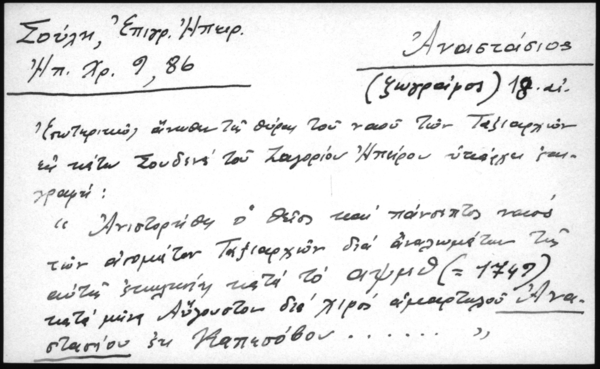 Σούλη, Ἐπιγρ. Ἠπειρ.
Ἠπ. Χρ. 9, 86
Ἀναστάσιος
(ζωγράφος) 18. αἰ.
Ἐσωτερικῶς ἄνωθεν τῆς θύρας τοῦ ναοῦ τῶν Ταξιαρχῶν
εἰς κάτω Σουδενά τοῦ Ζαγορίου Ἠπείρου ὑπάρχει ἐπι-
γραφή :
" Ἀνιστορήθη ὁ θεῖος καί πάνσεπτος ναός
τῶν ἀσομάτον Ταξιαρχῶν διά ἀναλωμάτων τῆς
αὐτῆς κατά τό αψμθ (= 1749)
κατά μῆνα Αὔγουστον διά χιρός ἁμαρτολοῦ Ἀνα-
στασίου ἐκ Καπεσόβου . . . . . . "